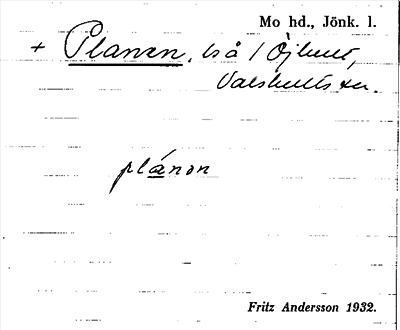 Mo hd., Jönk. l.
+ Planen, lså / Öjhult,
Valshults sn.
plánən
Fritz Andersson 1932.